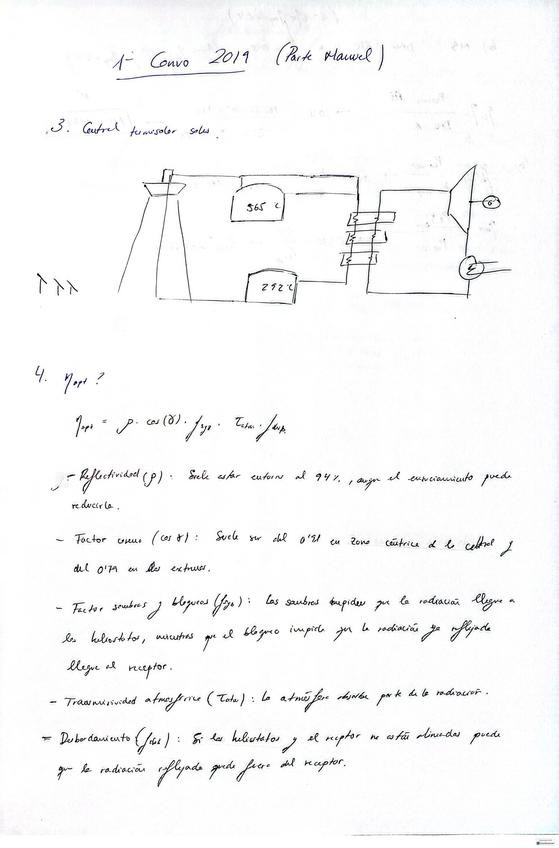 1ª Convo 2019 (Parte Manuel)
3. Central termosolar sales.
565 ºC
G
292 ºC
4. ηopt?
ηopt = ρ · cos(γ) · fsyb · τatm · fdesb
- Reflectividad (ρ): Suele estar entorno al 94%, aunque el ensuciamiento puede
reducirla.
- Factor coseno (cos γ): Suele ser del en zona céntrica de la central y
del 0'79 en los extremos.
- Factor sombras y bloqueos (fsyb): Las sombras impiden que la radiación llegue a
los heliostatos, mientras que el bloqueo impide que la radiación ya reflejada
llegue al receptor.
- Transmisividad atmosférica (τatm): La atmósfera absorbe parte de la radiación.
- Desbordamiento (fdesb): Si los heliostatos y el receptor no están alineados puede
que la radiación reflejada quede fuera del receptor.